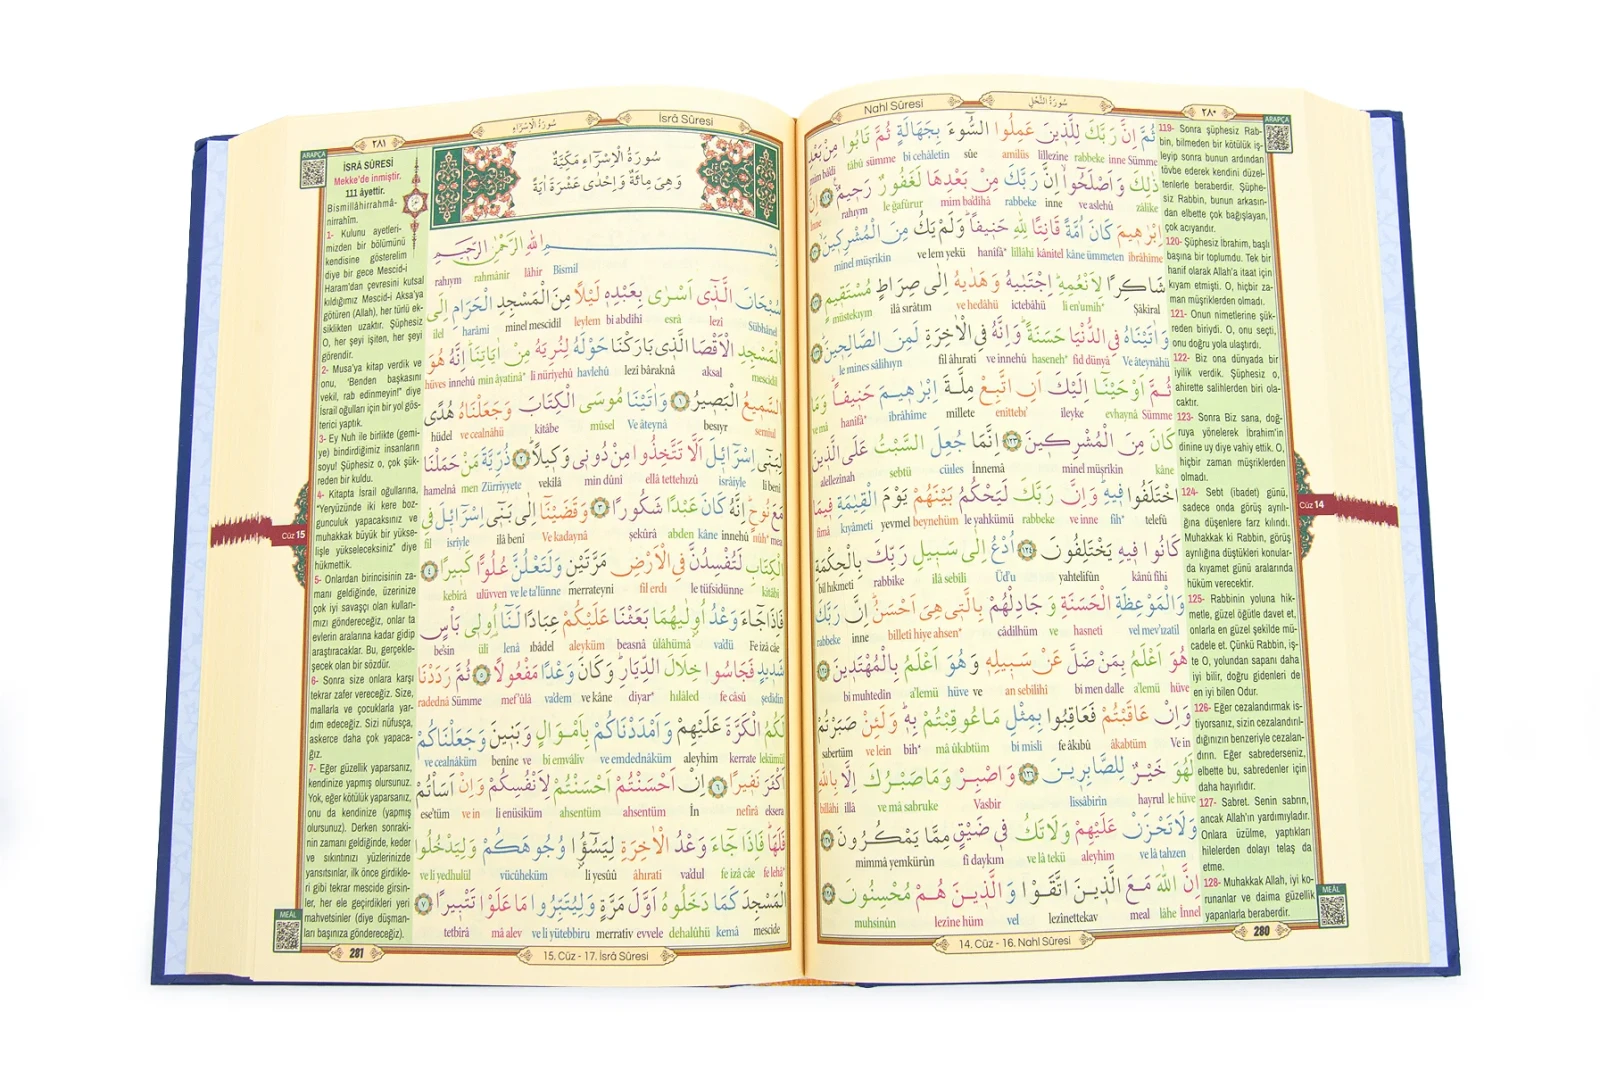 Nahl Sûresi
سُورَةُ النَّحْلِ
٢٨٠
ARAPÇA
ثُمَّ اِنَّ رَبَّكَ لِلَّذِينَ عَمِلُوا السُّوءَ بِجَهَالَةٍ ثُمَّ تَابُوا مِنْ بَعْدِ
mim bâdi tâbû sümme bi cehâletin sûe amilüs lillezîne rabbeke inne Sümme
ذٰلِكَ وَاَصْلَحُوا اِنَّ رَبَّكَ مِنْ بَعْدِهَا لَغَفُورٌ رَحِيمٌ ﴿١١٩﴾ اِنَّ
İnne rahıym le ğafûrur mim ba'dihâ rabbeke inne ve aslehû zâlike
اِبْرٰهِيمَ كَانَ اُمَّةً قَانِتًا لِلّٰهِ حَنِيفًا وَلَمْ يَكُ مِنَ الْمُشْرِكِينَ ﴿١٢٠﴾
minel müşrikîn ve lem yekü hanîfâ* lillâhi kânitel kâne ümmeten ibrâhîme
شَاكِرًا لِاَنْعُمِهِ اِجْتَبٰيهُ وَهَدٰيهُ اِلٰى صِرَاطٍ مُسْتَقِيمٍ ﴿١٢١﴾
müstekıym ilâ sırâtım ve hedâhü ictebâhü li en'umih* Şâkiral
وَاٰتَيْنَاهُ فِي الدُّنْيَا حَسَنَةً وَاِنَّهُ فِي الْاٰخِرَةِ لَمِنَ الصَّالِحِينَ ﴿١٢٢﴾
le mines sâlihıyn fil âhırati ve innehû haseneh* fid dünyâ Ve âteynâhü
ثُمَّ اَوْحَيْنَا اِلَيْكَ اَنِ اتَّبِعْ مِلَّةَ اِبْرٰهِيمَ حَنِيفًا وَمَا
ve mâ hanîfâ* ibrâhîme millete enittebı' ileyke evhaynâ Sümme
كَانَ مِنَ الْمُشْرِكِينَ ﴿١٢٣﴾ اِنَّمَا جُعِلَ السَّبْتُ عَلَى الَّذِينَ
alellezînah sebtü cüıles İnnemâ minel müşrikîn kâne
اخْتَلَفُوا فِيهِ وَاِنَّ رَبَّكَ لَيَحْكُمُ بَيْنَهُمْ يَوْمَ الْقِيٰمَةِ فِيمَا
fîmâ kıyâmeti yevmel beynehüm le yahkümü rabbeke ve inne fîh* telefû
كَانُوا فِيهِ يَخْتَلِفُونَ ﴿١٢٤﴾ اُدْعُ اِلٰى سَبِيلِ رَبِّكَ بِالْحِكْمَةِ
bil hıkmeti rabbike ilâ sebîli Üd'u yahtelifûn kânû fîhi
وَالْمَوْعِظَةِ الْحَسَنَةِ وَجَادِلْهُمْ بِالَّتِي هِيَ اَحْسَنُ اِنَّ رَبَّكَ
rabbeke inne billetî hiye ahsen* câdilhüm ve hasneti vel mev'ızatil
هُوَ اَعْلَمُ بِمَنْ ضَلَّ عَنْ سَبِيلِهِ وَهُوَ اَعْلَمُ بِالْمُهْتَدِينَ ﴿١٢٥﴾
bi muhtedîn a'lemü hüve ve an sebîlihî bi men dalle a'lemü hüve
وَاِنْ عَاقَبْتُمْ فَعَاقِبُوا بِمِثْلِ مَا عُوقِبْتُمْ بِهِ وَلَئِنْ صَبَرْتُمْ
sabertüm ve lein bih* mâ ûkabtüm bi misli fe âkıbû âkabtüm Ve in
لَهُوَ خَيْرٌ لِلصَّابِرِينَ ﴿١٢٦﴾ وَاصْبِرْ وَمَا صَبْرُكَ اِلَّا بِاللّٰهِ
billâhi illâ ve mâ sabruke Vasbir lissâbirîn hayrul le hüve
وَلَا تَحْزَنْ عَلَيْهِمْ وَلَا تَكُ فِي ضَيْقٍ مِمَّا يَمْكُرُونَ ﴿١٢٧﴾
mimmâ yemkürûn fî daykım ve lâ tekü aleyhim ve lâ tahzen
اِنَّ اللّٰهَ مَعَ الَّذِينَ اتَّقَوْا وَالَّذِينَ هُمْ مُحْسِنُونَ ﴿١٢٨﴾
muhsinûn lezîne hüm vel lezînettekav meal lâhe İnnel
119- Sonra şüphesiz Rab-
bin, bilmeden bir kötülük iş-
leyip sonra bunun ardından
tövbe ederek kendini düzel-
tenlerle beraberdir. Şüphe-
siz Rabbin, bunun arkasın-
dan elbette çok bağışlayan,
çok acıyandır.
120- Şüphesiz İbrahim, başlı
başına bir toplumdu. Tek bir
hanif olarak Allah'a itaat için
kıyam etmişti. O, hiçbir za-
man müşriklerden olmadı.
121- Onun nimetlerine şük-
reden biriydi. O, onu seçti,
onu doğru yola ulaştırdı.
122- Biz ona dünyada bir
iyilik verdik. Şüphesiz o,
ahirette salihlerden biri ola-
caktır.
123- Sonra Biz sana, doğ-
ruya yönelerek İbrahim'in
dinine uy diye vahiy ettik. O,
hiçbir zaman müşriklerden
olmadı.
124- Sebt (ibadet) günü,
sadece onda görüş ayrılı-
ğına düşenlere farz kılındı.
Muhakkak ki Rabbin, görüş
ayrılığına düştükleri konular-
da kıyamet günü aralarında
hüküm verecektir.
125- Rabbinin yoluna hik-
metle, güzel öğütle davet et,
onlarla en güzel şekilde mü-
cadele et. Çünkü Rabbin, iş-
te O, yolundan sapanı daha
iyi bilir, doğru gidenleri de
en iyi bilen Odur.
126- Eğer cezalandırmak is-
tiyorsanız, sizin cezalandırıl-
dığınızın benzeriyle cezalan-
dırın. Eğer sabrederseniz,
elbette bu, sabredenler için
daha hayırlıdır.
127- Sabret. Senin sabrın,
ancak Allah'ın yardımıyladır.
Onlara üzülme, yaptıkları
hilelerden dolayı telaş da
etme.
128- Muhakkak Allah, iyi ko-
runanlar ve daima güzellik
yapanlarla beraberdir.
Cüz 14
MEÂL
14. Cüz - 16. Nahl Sûresi
280
٢٨١
سُورَةُ الْاِسْرَاءِ
İsrâ Sûresi
ARAPÇA
سُورَةُ الْاِسْرَاءِ مَكِّيَّةٌ
وَهِيَ مِائَةٌ وَاِحْدٰى عَشْرَةَ اٰيَةً
بِسْمِ اللّٰهِ الرَّحْمٰنِ الرَّحِيمِ
rahıym rahmânir lâhir Bismil
سُبْحَانَ الَّذِي اَسْرٰى بِعَبْدِهِ لَيْلًا مِنَ الْمَسْجِدِ الْحَرَامِ اِلَى
ilel harâmi minel mescidil leylem bi abdihî esrâ lezî Sübhânel
الْمَسْجِدِ الْاَقْصَا الَّذِي بَارَكْنَا حَوْلَهُ لِنُرِيَهُ مِنْ اٰيَاتِنَا اِنَّهُ هُوَ
hüves innehû min âyatinâ* li nüriyehû havlehû lezî bâraknâ aksal mescidil
السَّمِيعُ الْبَصِيرُ ﴿١﴾ وَاٰتَيْنَا مُوسَى الْكِتَابَ وَجَعَلْنَاهُ هُدًى
hüdel ve cealnâhü kitâbe mûsel Ve âteynâ besıyr semiul
لِبَنِي اِسْرَائِيلَ اَلَّا تَتَّخِذُوا مِنْ دُونِي وَكِيلًا ﴿٢﴾ ذُرِّيَّةَ مَنْ حَمَلْنَا
hamelnâ men Zürriyyete vekîlâ min dûnî ellâ tettehızû isrâiyle li benî
مَعَ نُوحٍ اِنَّهُ كَانَ عَبْدًا شَكُورًا ﴿٣﴾ وَقَضَيْنَا اِلٰى بَنِي اِسْرَائِيلَ فِي
fil isrîyle ilâ benî Ve kadaynâ şekûrâ abden kâne innehû nûh* mea
الْكِتَابِ لَتُفْسِدُنَّ فِي الْاَرْضِ مَرَّتَيْنِ وَلَتَعْلُنَّ عُلُوًّا كَبِيرًا ﴿٤﴾
kebîrâ ulüvven ve le ta'lünne merrateyni fil erdı le tüfsidünne kitâbi
فَاِذَا جَاءَ وَعْدُ اُولٰيهُمَا بَعَثْنَا عَلَيْكُمْ عِبَادًا لَنَا اُولِي بَأْسٍ
be'sin ülî lenâ ıbâdel aleyküm beasnâ ûlâhümâ va'dü Fe izâ câe
شَدِيدٍ فَجَاسُوا خِلَالَ الدِّيَارِ وَكَانَ وَعْدًا مَفْعُولًا ﴿٥﴾ ثُمَّ رَدَدْنَا
radednâ Sümme mef'ûlâ va'dem ve kâne diyar* hılâled fe câsû şedîdin
لَكُمُ الْكَرَّةَ عَلَيْهِمْ وَاَمْدَدْنَاكُمْ بِاَمْوَالٍ وَبَنِينَ وَجَعَلْنَاكُمْ
ve cealnâküm benîne ve bi emvâliv ve emdednâküm aleyhim kerrate lekümü
اَكْثَرَ نَفِيرًا ﴿٦﴾ اِنْ اَحْسَنْتُمْ اَحْسَنْتُمْ لِاَنْفُسِكُمْ وَاِنْ اَسَأْتُمْ
ese'tüm ve in li enfüsiküm ahsentüm ahsentüm İn nefîrâ eksera
فَلَهَا فَاِذَا جَاءَ وَعْدُ الْاٰخِرَةِ لِيَسُوءُ۫ا وُجُوهَكُمْ وَلِيَدْخُلُوا
ve li yedhulül vücûheküm li yesûû âhırati va'dul fe izâ câe fe lehâ*
الْمَسْجِدَ كَمَا دَخَلُوهُ اَوَّلَ مَرَّةٍ وَلِيُتَبِّرُوا مَا عَلَوْا تَتْبِيرًا ﴿٧﴾
tetbîrâ mâ alev ve li yütebbiru merrativ evvele dehalûhü kemâ mescide
İSRÂ SÛRESİ
Mekke'de inmiştir.
111 âyettir.
Bismillâhirrahmâ-
nirrahîm.
1- Kulunu ayetleri-
mizden bir bölümünü
kendisine gösterelim
diye bir gece Mescid-i
Haram'dan çevresini kutsal
kıldığımız Mescid-i Aksa'ya
götüren (Allah), her türlü ek-
siklikten uzaktır. Şüphesiz
O, her şeyi işiten, her şeyi
görendir.
2- Musa'ya kitap verdik ve
onu, 'Benden başkasını
vekil, rab edinmeyin!" diye
İsrail oğulları için bir yol gös-
terici yaptık.
3- Ey Nuh ile birlikte (gemi-
ye) bindirdiğimiz insanların
soyu! Şüphesiz o, çok şük-
reden bir kuldu.
4- Kitapta İsrail oğullarına,
"Yeryüzünde iki kere boz-
gunculuk yapacaksınız ve
muhakkak büyük bir yükse-
lişle yükseleceksiniz" diye
hükmettik.
5- Onlardan birincisinin za-
manı geldiğinde, üzerinize
çok iyi savaşçı olan kulları-
mızı göndereceğiz, onlar ta
evlerin aralarına kadar gidip
araştıracaklar. Bu, gerçekle-
şecek olan bir sözdür.
6- Sonra size onlara karşı
tekrar zafer vereceğiz. Size,
mallarla ve çocuklarla yar-
dım edeceğiz. Sizi nüfusça,
askerce daha çok yapaca-
ğız.
7- Eğer güzellik yaparsanız,
kendinize yapmış olursunuz.
Yok, eğer kötülük yaparsanız,
onu da kendinize (yapmış
olursunuz). Derken sonraki-
nin zamanı geldiğinde, keder
ve sıkıntınızı yüzlerinizde
yansıtsınlar, ilk önce girdikle-
ri gibi tekrar mescide girsin-
ler, her ele geçirdikleri yeri
mahvetsinler (diye düşman-
ları başınıza göndereceğiz).
Cüz 15
MEÂL
281
15. Cüz - 17. İsrâ Sûresi